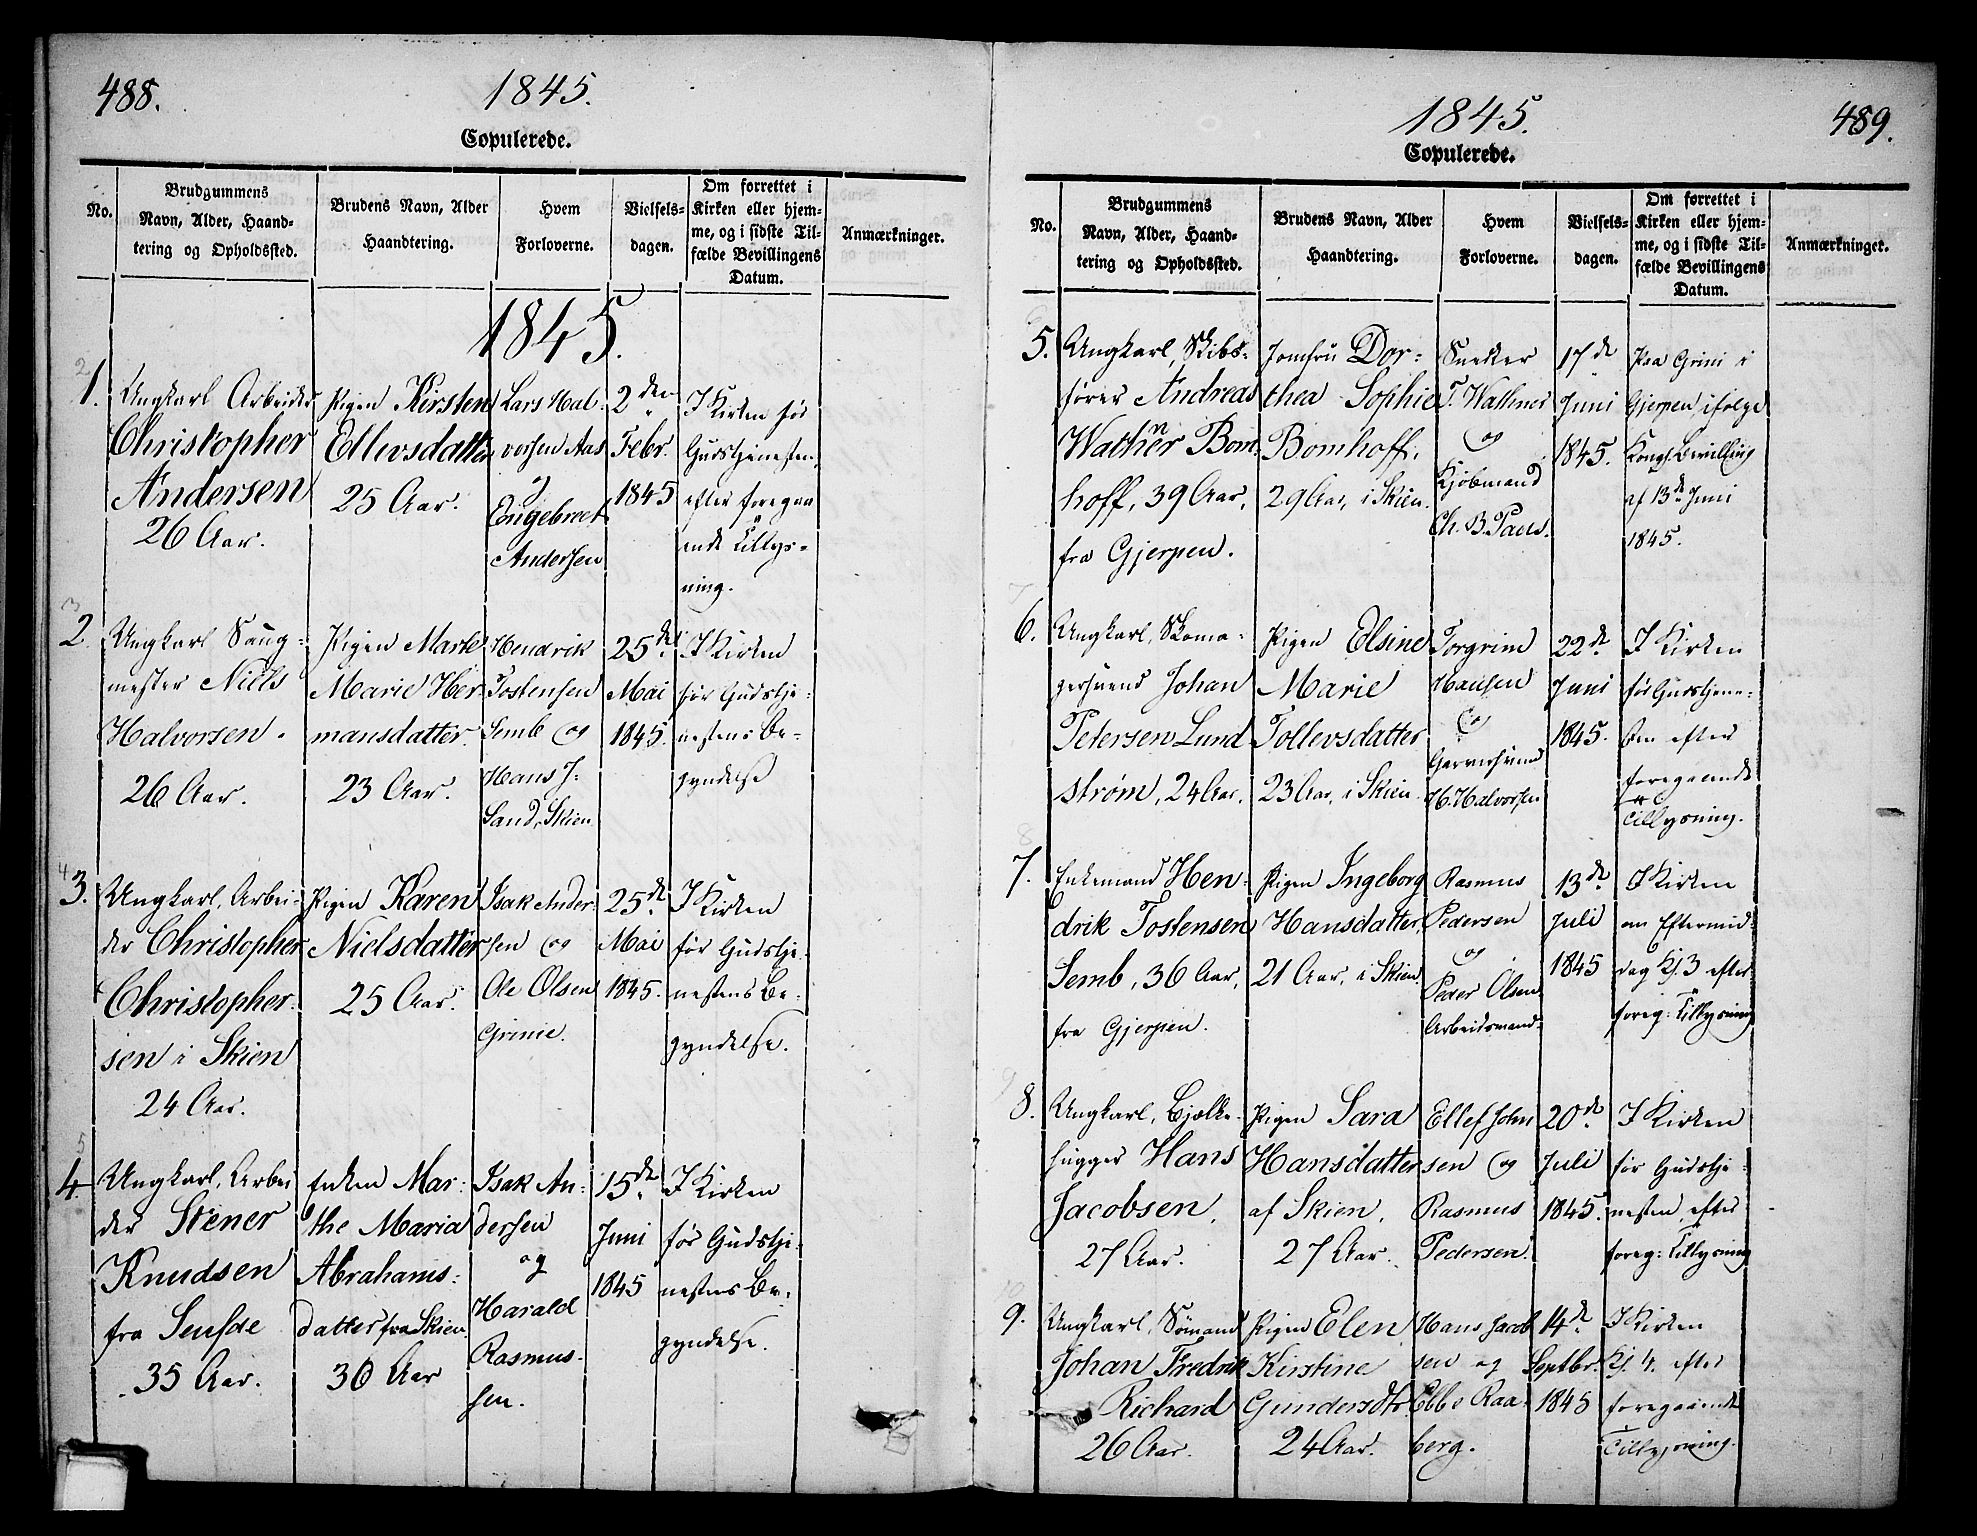 488.
1845.
Copulerede.
No.
Brudgummens
Navn, Alder, Haand-
tering og Opholdssted.
Brudens Navn, Alder
Haandtering.
Hvem
Forloverne.
Vielsels-
dagen.
Om forrettet i
Kirken eller hjem-
me, og i sidste Til-
fælde Bevillingens
Datum.
Anmærkninger.
1845.
1.
Ungkarl Arbeider
Christopher
Andersen
26 Aar.
Pigen Kirsten
Ellevsdatter
25 Aar.
Lars Hal-
vorsen Aas
Engebrect
Andersen
2den
Febr.
1845
I Kirken før
Gudstjenesten,
efter foregaa
ende Tillys-
ning.
2.
Ungkarl Saug-
mester Niels
Halvorsen.
26 Aar.
Pigen Marte
Marie Her
mansdatter.
23 Aar.
Hendrik
Tostensen
Semb og
Hans J.
Sand, Skien
25de
Mai
1845.
I Kirken
før Gudstje-
nestens Be-
gyndelse
3.
Ungkarl, Arbei-
der Christopher
Christopher-
sen i Skien
24 Aar.
Pigen Karen
Nielsdatter
25 Aar.
Isak Ander-
sen og
Ole Olsen
Grinie.
25de
Mai
1845.
I Kirken
før Gudstje-
nestens Be-
gyndelse.
4
Ungkarl, Arbei
der Stener
Knudsen
fra
35 Aar.
Enken Mar-
the Maria
Abrahams-
datter fra Skien
36 Aar
Isak An-
dersen
og
Harald
Rasmus-
sen.
15de
Juni
1845
I Kirken
før Gudstje-
nestens Be-
gyndelse.
1845.
489.
Copulerede.
No.
Brudgummens
Navn, Alder, Haand-
tering og Opholdssted.
Brudens Navn, Alder
Haandtering.
Hvem
Forloverne.
Vielsels-
dagen.
Om forrettet i
Kirken eller hjem-
me, og i sidste Til-
fælde Bevillingens
Datum.
Anmærkninger.
5.
Ungkarl, Skibs-
fører Andreas
Wathner Bom-
hoff, 39 Aar,
fra Gjerpen.
Jomfru Dor-
thea Sophie
Bomhoff,
29 Aar, i Skien.
Snekker
T. Wathner
og
Kjøbmand
Ch. B. Paus.
17de
Juni
1845.
Paa Grini i
Gjerpen ifølge
Kongl. Bevilling
af 13de Juni
1845.
6.
Ungkarl, Skoma-
gersvend Johan
Petersen Lund
strøm, 24 Aar.
Pigen Elsine
Marie
Tollevsdatter
23 Aar, i Skien.
Torgrim
Hansen
og
Garversvend
H. Halvorsen
22de
Juni
1845.
I Kirken
før Gudstjene-
sten efter
foregaaende
Tillysning.
7.
Enkemand Hen-
drik Tostensen
Semb, 36 Aar,
fra Gjerpen.
Pigen Ingeborg
Hansdatter,
21 Aar, i Skien.
Rasmus
Pedersen
og
Peder Olsen
Arbeidsmand.
13de
Juli
1845
I Kirken
om Eftermid-
dag Kl. 3 efter
foreg: Tillysning
8.
Ungkarl, Bjelke-
hugger Hans
Jacobsen,
27 Aar.
Pigen Sara
Hansdatter
af Skien,
27 Aar.
Ellef John
sen og
Rasmus
Pedersen.
20de
Juli
1845.
I Kirken
før Gudstje-
nesten, efter
foreg: Tillysning
9.
Ungkarl, Sømand
Johan Fredrik
Richard
26 Aar.
Pigen Elen
Kirstine
Gundersdtr.
24 Aar.
Hans Jacob
sen og
Ebbe Raa-
berg.
14de
Septbr.
1845
I Kirken
Kl. 4. efter
foregaaende
Tillysning.